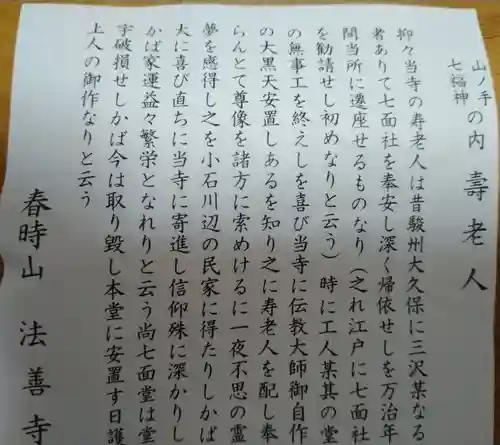 山ノ手
七福神
の内 壽老人
抑々当寺の寿老人は昔駿州大久保に三沢某なる
者ありて七面社を奉安し深く帰依せしを万治年
間当所に遷座せるものなり（之れ江戸に七面社
を勧請せし初めなりと云う）時に工人某其の堂
の無事工を終えしを喜び当寺に伝教大師御自作
の大黒天安置しあるを知り之に寿老人を配し奉
らんとて尊像を諸方に索めけるに一夜不思の霊
夢を感得し之を小石川辺の民家に得たりしかば
大に喜び直ちに当寺に寄進し信仰殊に深かりし
かば家運益々繁栄となれりと云う尚七面堂は堂
宇破損せしかば今は取り毀し本堂に安置す日護
上人の御作なりと云う
春時山 法善寺